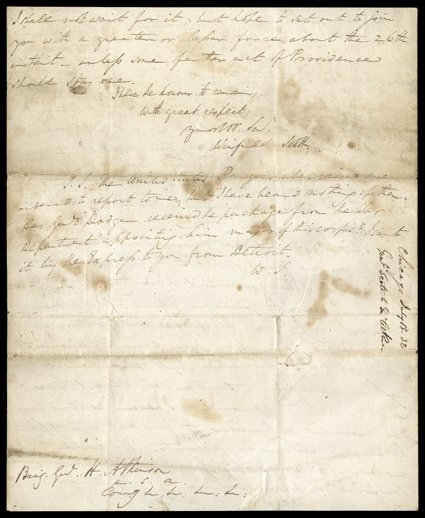 I shall not wait for it, but hope to set out to join
you with a greater or lesser force about the 26th
instant, unless some further act of Providence
should stay me.
I have the honour to remain,
With great respect,
Your Obt. Svt.
Winfield Scott.
P.S. The United States Rangers
ordered to report to me, but I have heard nothing of them.
Has Genl. Dodge received the package from the War
Department appointing him major of his corps? I sent
it by the Express to you from Detroit.
W. S.
Chicago July 18. 32
Genl. Scott to Genl. Atkinson
Brig. Genl. H. Atkinson
U. S. A.